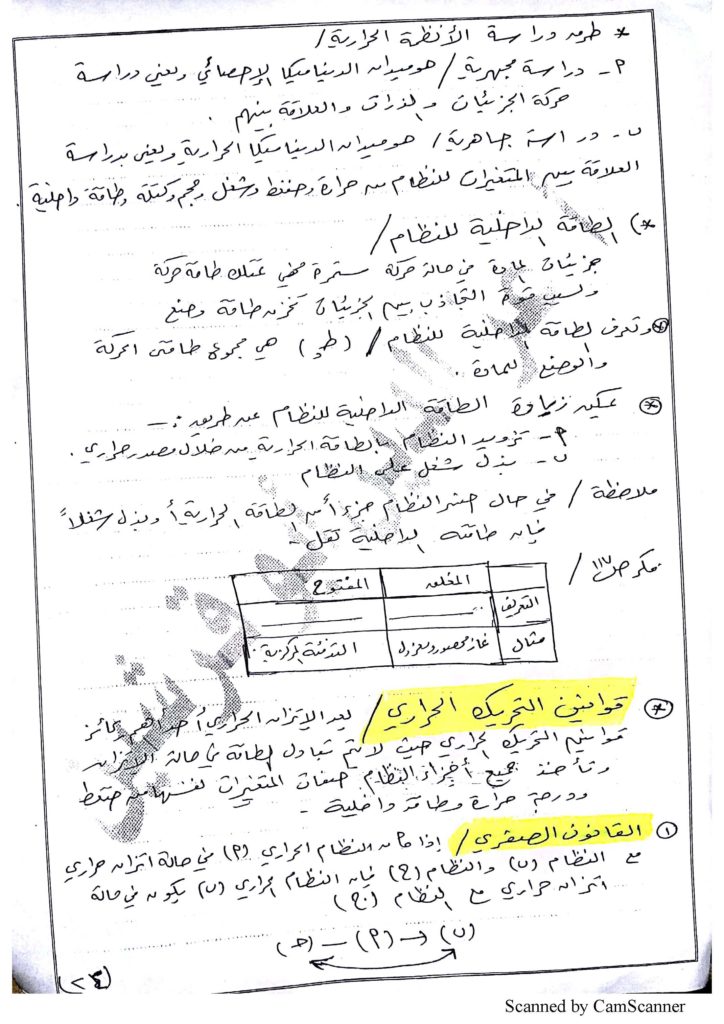 * طرق دراسة الأنظمة الحرارية /
أ- دراسة مجهرية / هو ميدان الديناميكا الإحصائي ويعني دراسة
حركة الجزيئات والذرات والعلاقة بينهم .
ب- دراسة جاهرية / هو ميدان الديناميكا الحرارية ويعنى بدراسة
العلاقة بين المتغيرات للنظام من حرارة وضغط وشغل وحجم وكتلة وطاقة داخلية .
*) الطاقة الداخلية للنظام /
جزيئات المادة في حالة حركة مستمرة فهي تمتلك طاقة حركة
وبسبب قوة التجاذب بين الجزيئات تخزن طاقة وضع
* وتعرف الطاقة الداخلية للنظام / (ط د) هي مجموع طاقتي الحركة
والوضع للمادة .
* يمكن زيادة الطاقة الداخلية للنظام عن طريق :-
أ- تزويد النظام بالطاقة الحرارية من خلال مصدر حراري .
ب- بذل شغل على النظام
ملاحظة / في حال خسر النظام جزءاً من الطاقة الحرارية أو بذل شغلاً
فإن طاقته الداخلية تقل .
فكر ص١١٧ /
المغلق المفتوح
التعريف
مثال غاز محصور ومعزول التدفئة المركزية
* قوانين التحريك الحراري / يعد الإتزان الحراري أحد أهم ركائز
قوانين التحريك الحراري حيث لا يتم تبادل الطاقة في حالة الإتزان
وتأخذ جميع أجزاء النظام صفات المتغيرات نفسها من ضغط
ودرجة حرارة وطاقة داخلية .
١ القانون الصفري / إذا كان النظام الحراري (أ) في حالة اتزان حراري
مع النظام (ب) والنظام (ج) فإن النظام الحراري (ب) يكون في حالة
اتزان حراري مع النظام (ج)
(ب) - (أ) - (ج)
(٢٤)
Scanned by CamScanner